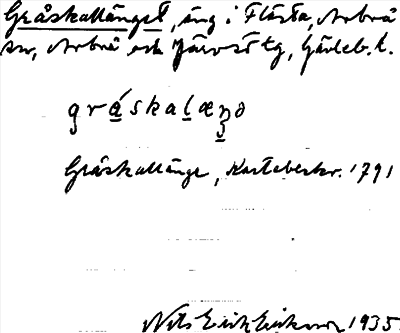 Gråskallänget, äng i Flästa, Arbrå
sn, Arbrå och Järvsö tg, Gävleb. l.
gråskalæŋə
Gråskallänge, Kartebeskr. 1791
Nils Erik Eriksson 1935.